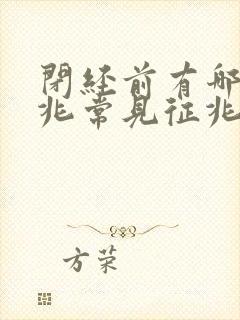 閉経前有哪
兆常見征兆
方荣